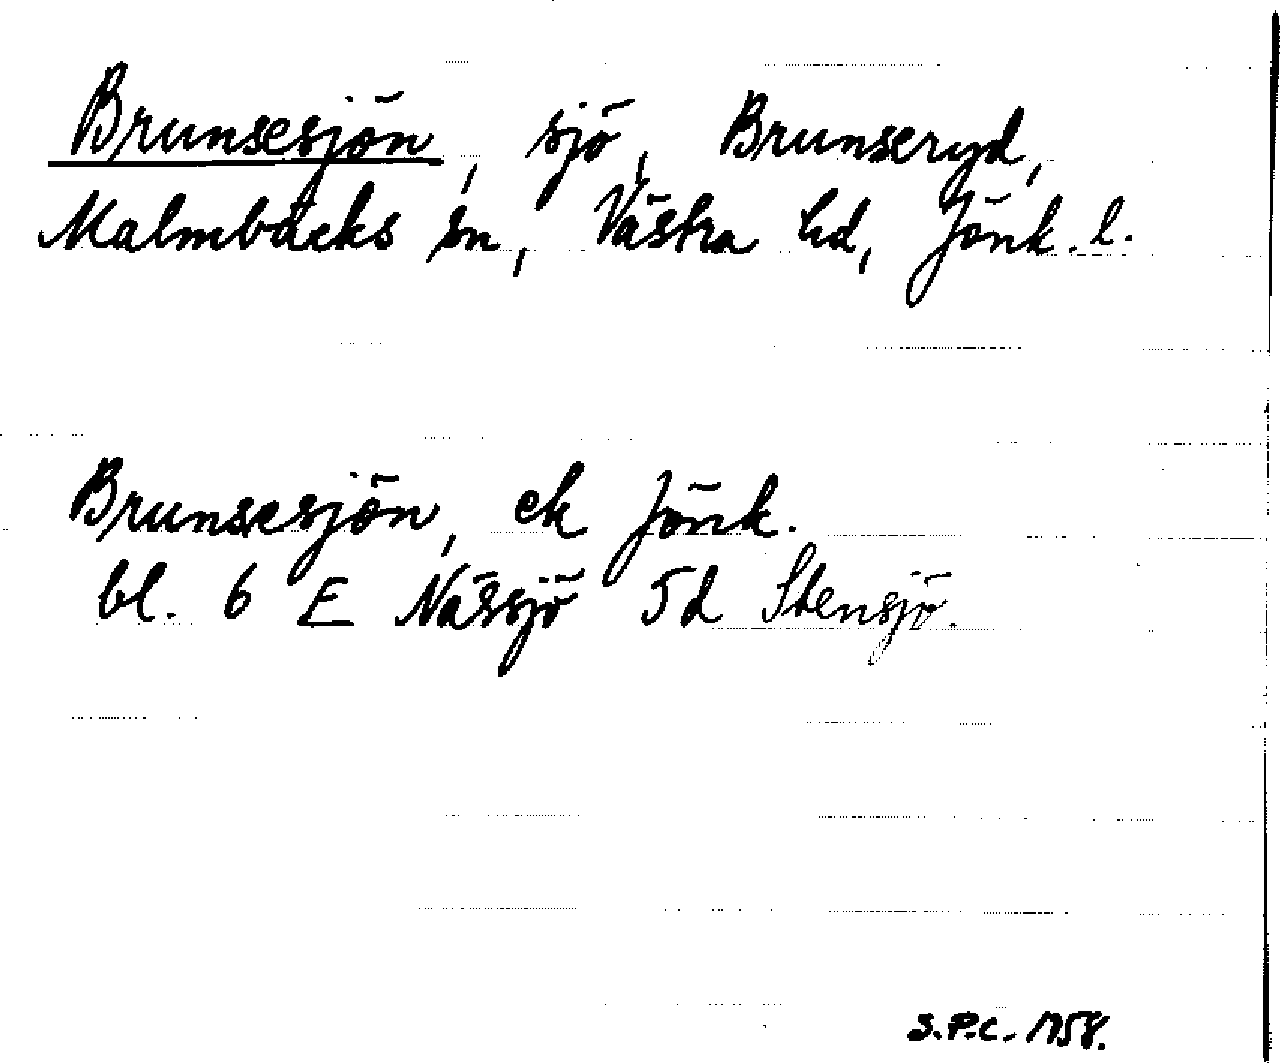 Brunsesjön, sjö, Brunseryd,
Malmbäcks sn, Västra hd, Jönk. l.
Brunsesjön, ek Jönk.
bl. 6 E Nässjö 5d Stensjö.
S.P.C. 1958.